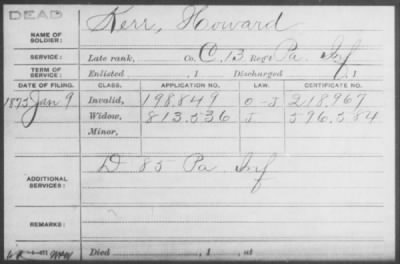 DEAD
NAME OF SOLDIER: Kerr, Howard
SERVICE: Late rank, Co. C, 13 Reg't Pa. Inf
TERM OF SERVICE: Enlisted , 1 Discharged , 1
DATE OF FILING. CLASS. APPLICATION NO. LAW. CERTIFICATE NO.
1875 Jan 9 Invalid, 198.849 218.967
Widow, 813.536 596.584
Minor,
ADDITIONAL SERVICES: D 85 Pa Inf
REMARKS:
Died , 1 , at